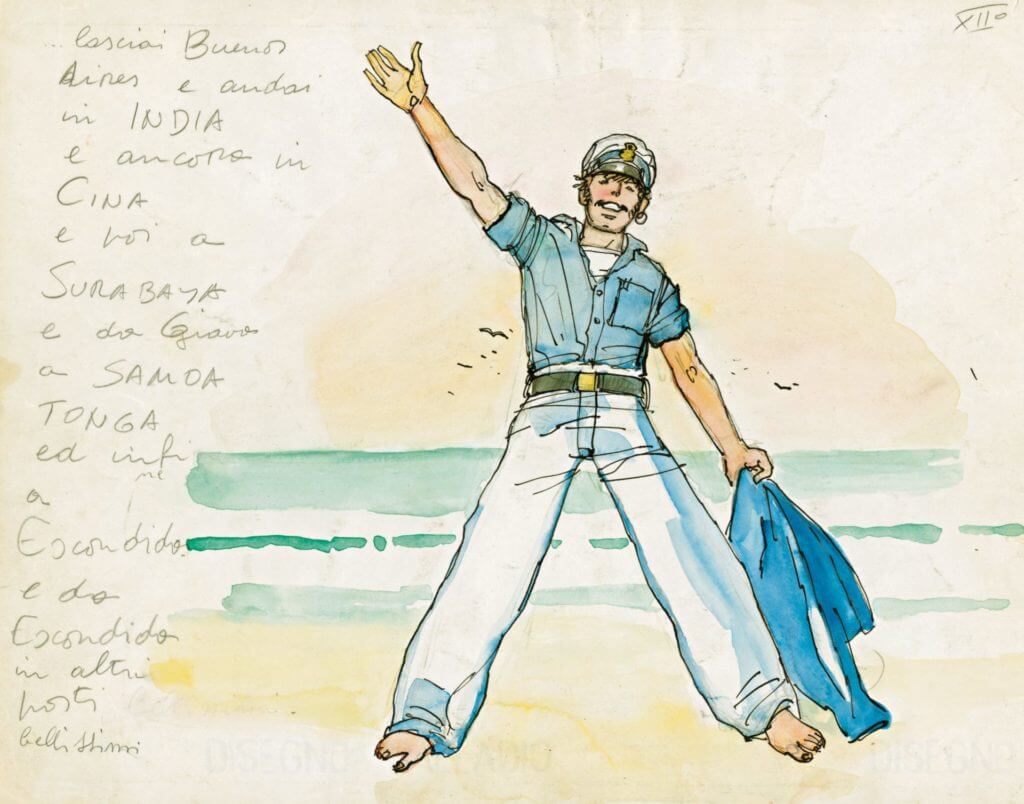 XIIº
... lasciai Buenos
Aires e andai
in INDIA
e ancora in
CINA
e poi a
SURABAYA
e da Giava
a SAMOA
TONGA
ed infi
ne
a
Escondida
e da
Escondida
in altri
posti
bellissimi
DISEGNO
DISEGN